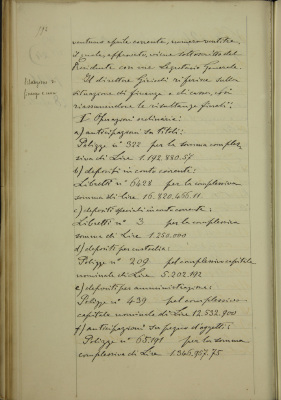 ventuno aprile corrente, numero ventitre,
il quale, approvato, viene sottoscritto dal
Presidente con me Segretario Generale.
Il direttore riferisce sulla
situazione di finanza e di cassa,
riassumendone le risultanze finali:
I Operazioni ordinarie:
a) anticipazioni su titoli:
Polizze n° 322 per la somma comples
siva di Lire 1.192.880.57
b) depositi in conto corrente:
Libretti n° 6428 per la complessiva
somma di lire 16.820.456.11
c) depositi speciali in conto corrente:
Libretti n° 3 per la complessiva
somma di Lire 1.250.000
d) depositi per custodia:
Polizze n° 209 pel complessivo capitale
nominale di Lire 5.202.192
e) depositi per amministrazione:
Polizze n° 439 pel complessivo
capitale nominale di Lire 12.532.900
f) anticipazioni su pegno d'oggetti:
Polizze n° 65.191 per la somma
complessiva di Lire 1.365.957.75